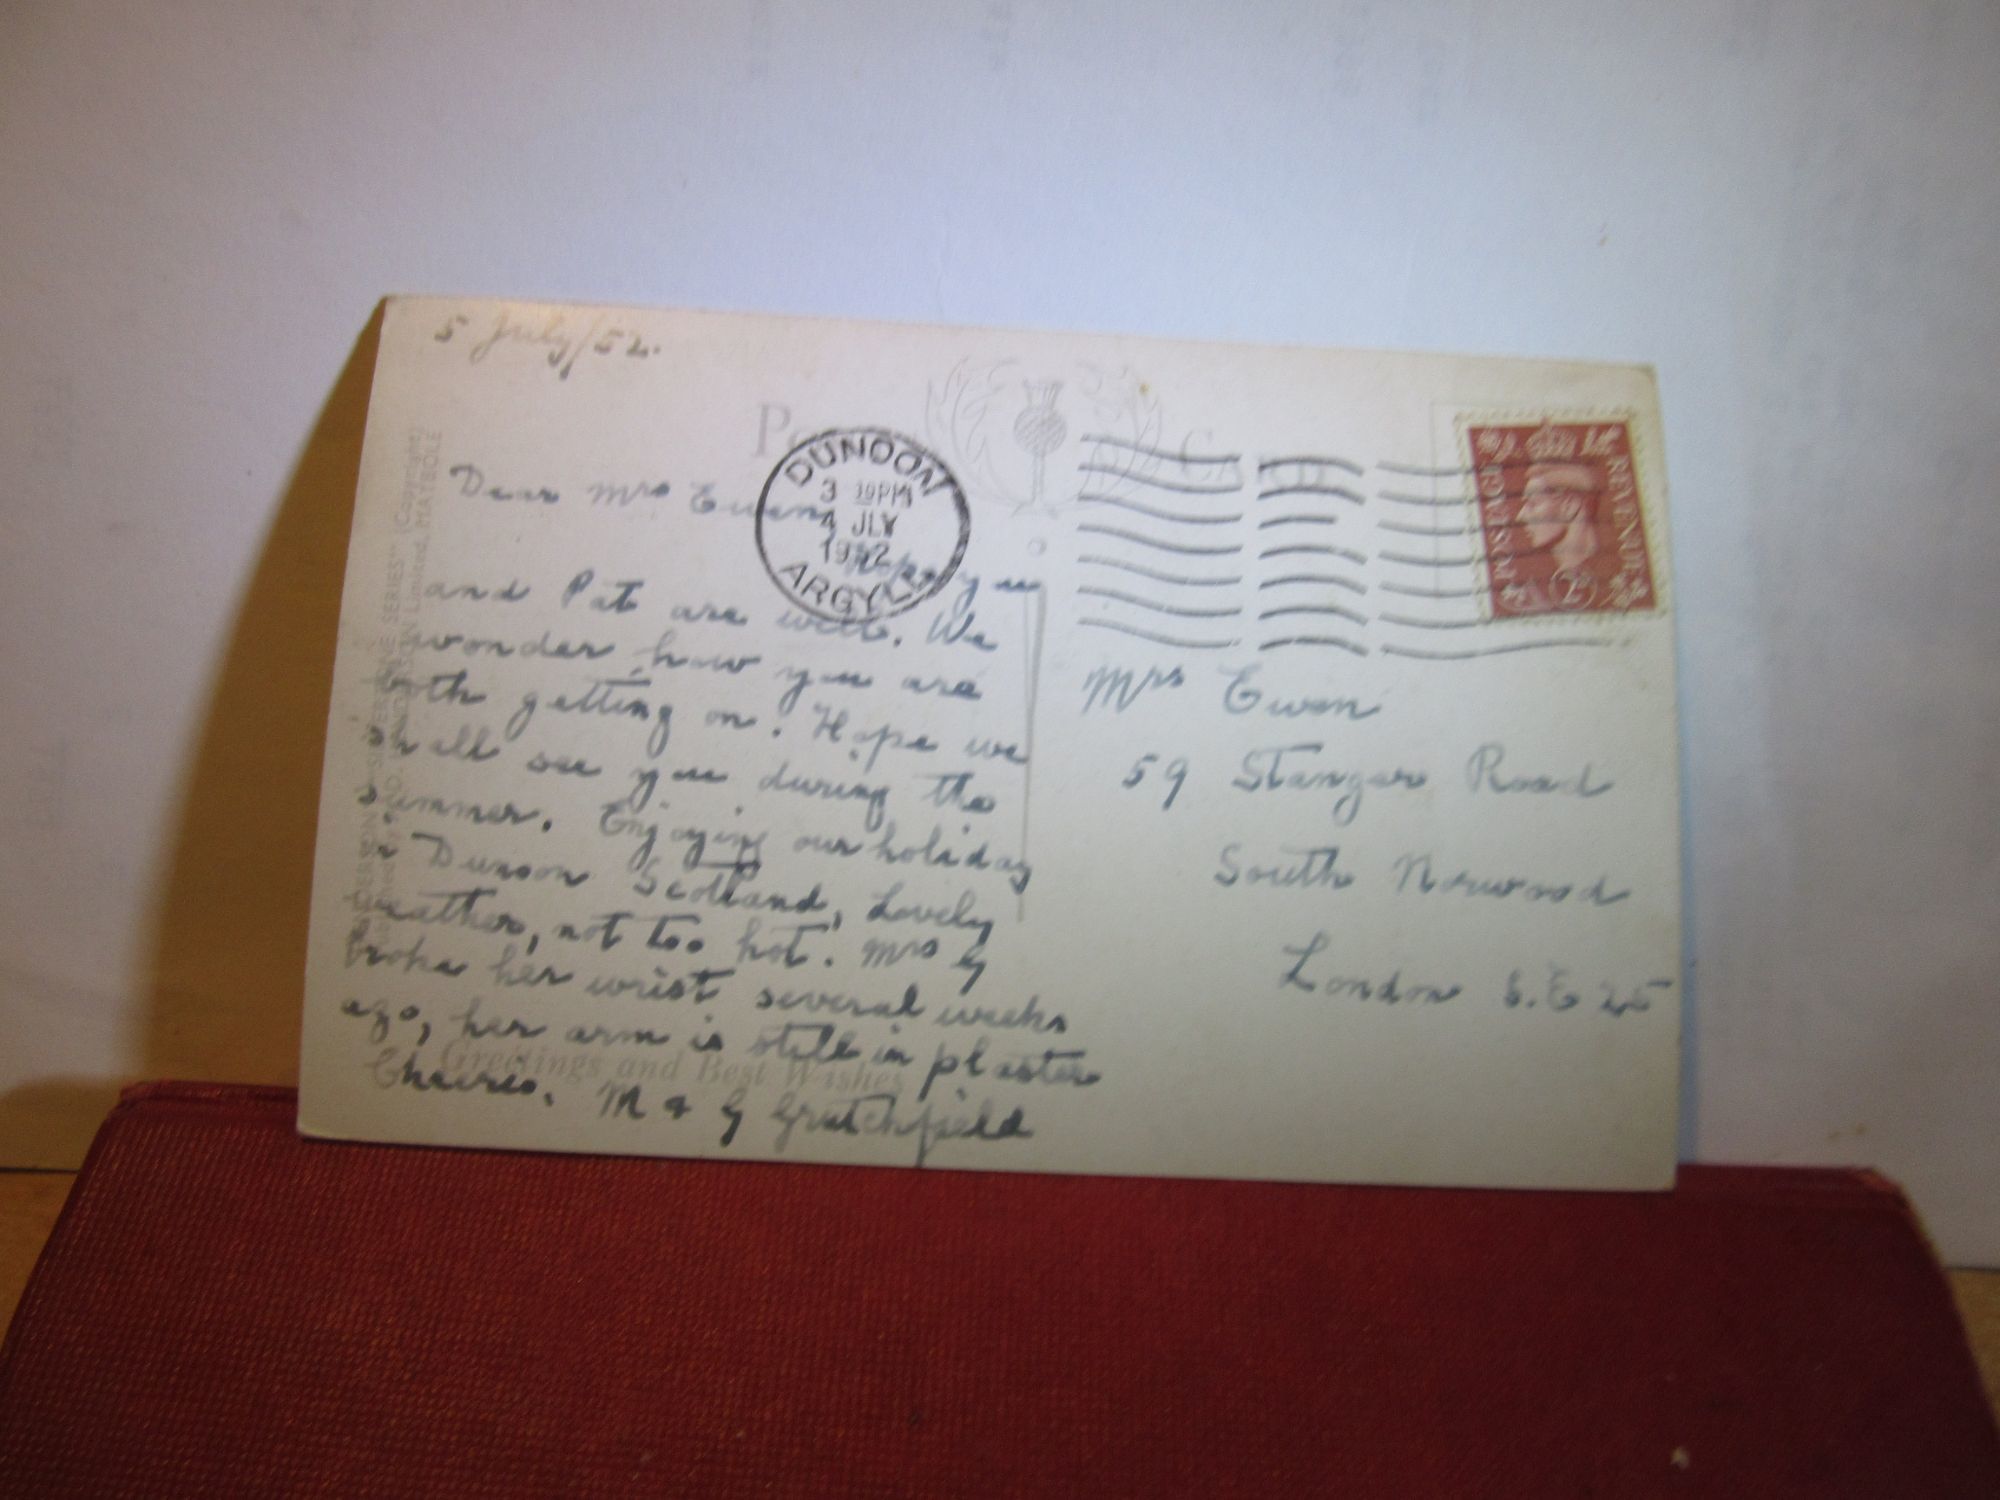 5 July/52.
POST CARD
DUNOON
3 30PM
4 JLY
1952
ARGYLL
POSTAGE REVENUE
2D
Dear Mrs Ewen,
Hope you
and Pat are well. We
wonder how you are
both getting on. Hope we
shall see you during the
summer. Enjoying our holiday
at Dunoon Scotland, Lovely
weather, not too hot. Mrs G
broke her wrist several weeks
ago, her arm is still in plaster
Cheerio. M & G Grutchfield
Greetings and Best Wishes
Mrs Ewen
59 Stangar Road
South Norwood
London S.E 25
SERIES" (Copyright)
Limited, MAYBOLE